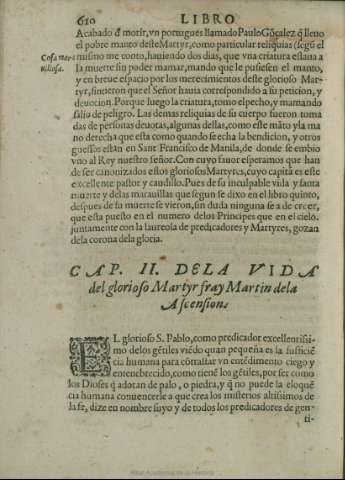 610 LIBRO
Acabado đ morir, vn portugues llamado Paulo Gōçalez q̃ lleuo
el pobre manto deste Martyr, como particular reliquias (segũ el
Cosa mara mismo me conto, hauiendo dos dias, que vna criatura estaua a
uillosa. la muerte sin poder mamar, mando que le pusiesen el manto,
y en breue espacio por los merecimientos deste glorioso Mar-
tyr, sintieron que el Señor hauia correspondido a su peticion, y
deuocion. Porque luego la criatura, tomo el pecho, y mamando
salio de peligro. Las demas reliquias de su cuerpo fueron toma
das de personas deuotas, algunas dellas, como es la mão y la ma
no derecha que esta como quando se echa la bendicion, y otros
guessos estan en Sant Francisco de Manila, de donde se embio
vno al Rey nuestro señor. Con cuyo fauor esperamos que han
de ser canonizados estos gloriosos Martyres, cuyo capitã es este
excellente pastor y caudillo. Pues de su inculpable vida y santa
muerte y delas marauillas que segun se dixo en el libro quinto,
despues de su muerte se vieron, sin duda ninguna se a de creer,
que esta puesto en el numero delos Principes que en el cielo.
juntamente con la laureola de predicadores y Martyres, gozan
dela corona dela gloria.
CAP. II. DELA VIDA
del glorioso Martyr fray Martin dela
Ascension.
EL glorioso S. Pablo, como predicador excellentissi-
mo delos gẽtiles viẽdo quan pequeña es la sufficiẽ
cia humana para cõtrastar vn entẽdimento ciego y
entenebrecido, como tienẽ los gẽtiles, por ser como
los Dioses q̃ adoran de palo, o piedra, y q̃ no puede la eloquẽ
cia humana conuencerle a que crea los misterios altissimos de
la fe, dize en nombre suyo y de todos los predicadores de gen-
ti-